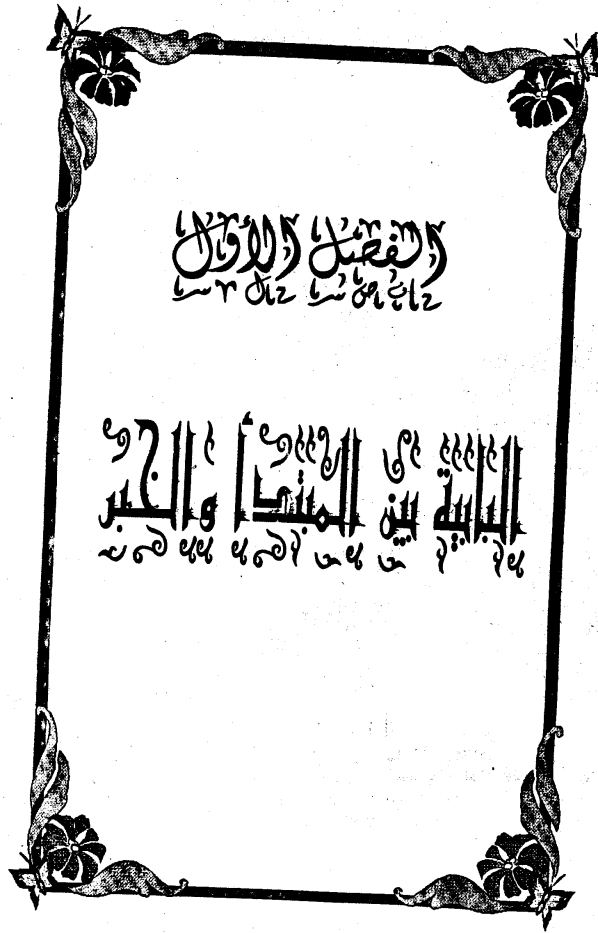 الفصل الأول
البابية بين المبتدأ والخبر